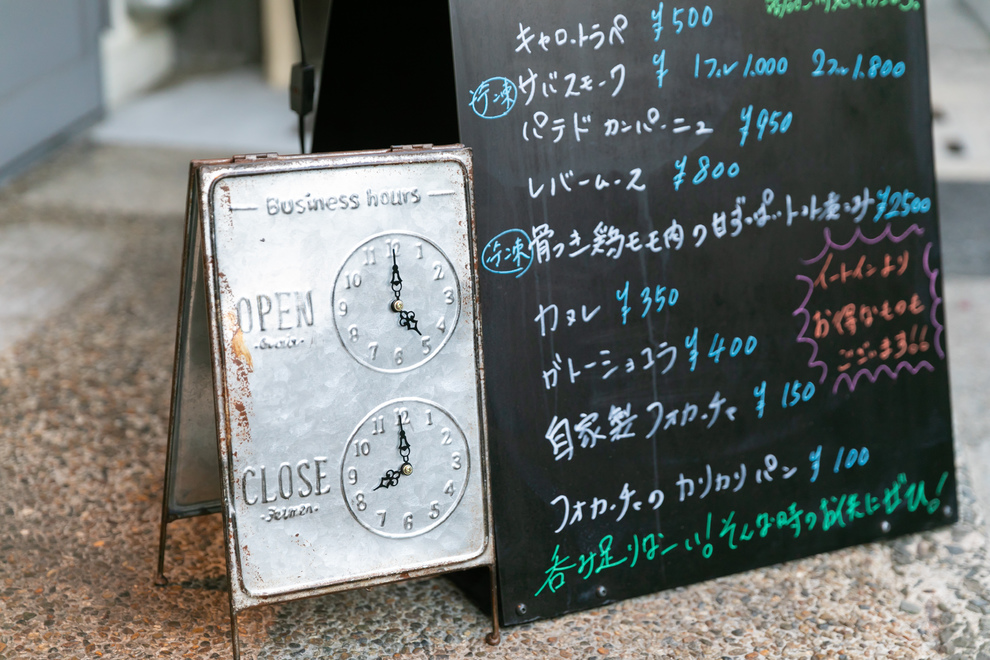 Business hours
OPEN
12
1
2
3
4
5
6
7
8
9
10
11
CLOSE
12
1
2
3
4
5
6
7
8
9
10
11
キャロットラペ ¥500
冷凍 サバスモーク ¥ 1フィレ1.000 2フィレ1.800
パテドカンパーニュ ¥950
レバームース ¥800
冷凍 骨つき鶏モモ肉の甘ずっぱいトマト煮込み ¥2500
カヌレ ¥350
ガトーショコラ ¥400
自家製フォカッチャ ¥150
フォカッチャのカリカリパン ¥100
イートインより
お得なものも
ございます!!
呑み足りなーい!そんな時のお供にぜひ!